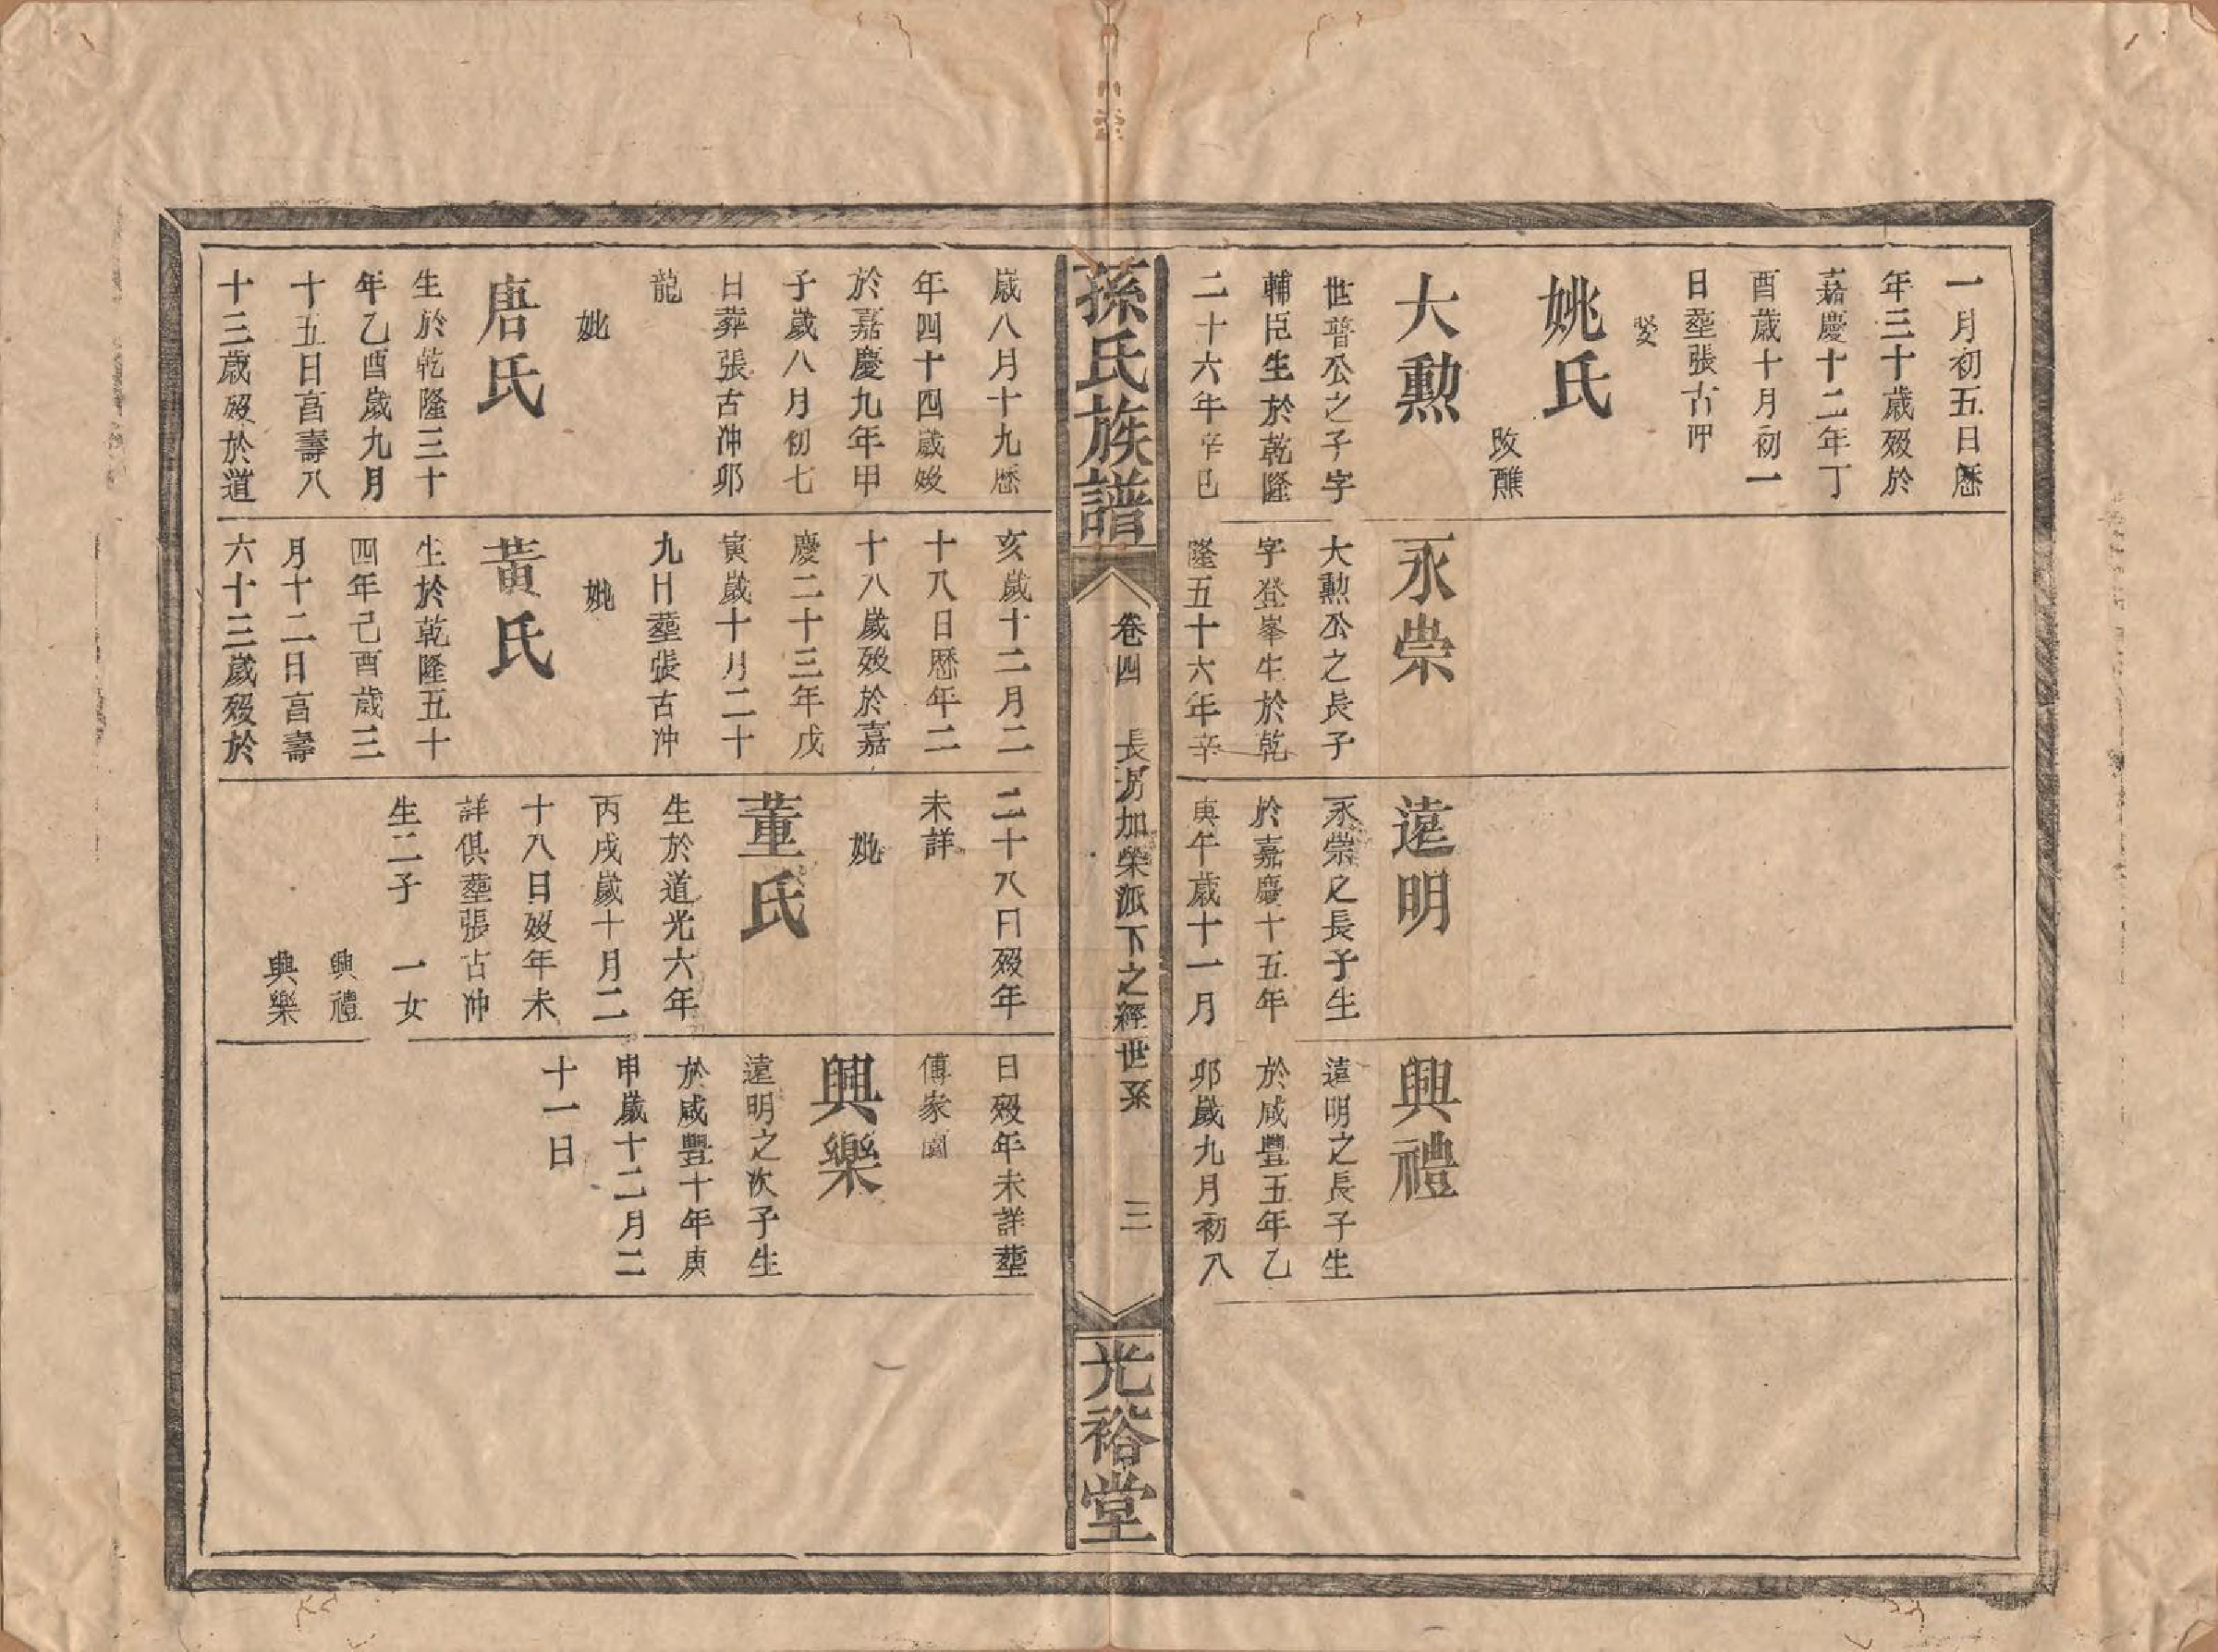 一月初五日歷
年三十歲歿於
嘉慶十二年丁
酉歲十月初一
日塟張古冲
娶
姚氏
改醮
大勲
世普公之子字
輔臣生於乾隆
二十六年辛巳
歲八月十九歷
年四十四歲歿
於嘉慶九年甲
子歲八月初七
日葬張古冲卯
龍
妣
唐氏
生於乾隆三十
年乙酉歲九月
十五日亯壽八
十三歲歿於道
永崇
大勲公之長子
字登峯生於乾
隆五十六年辛
亥歲十二月二
十八日歷年二
十八歲歿於嘉
慶二十三年戊
寅歲十月二十
九日塟張古冲
妣
黃氏
生於乾隆五十
四年己酉歲三
月十二日亯壽
六十三歲歿於
遠明
永崇之長子生
於嘉慶十五年
庚午歲十一月
二十八日歿年
未詳
妣
董氏
生於道光六年
丙戌歲十月二
十八日歿年未
詳俱塟張古冲
生二子 一女
興禮
興樂
興禮
遠明之長子生
於咸豐五年乙
卯歲九月初八
日歿年未詳塟
傅家園
興樂
遠明之次子生
於咸豐十年庚
申歲十二月二
十一日
孫氏族譜
卷四 長房加榮派下之經世系 三
光裕堂